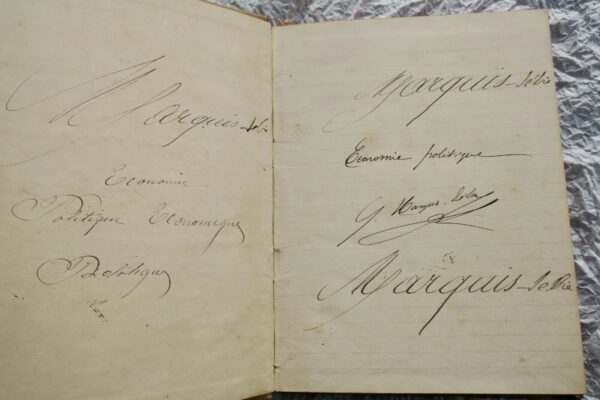 Marquis-Sébie
Economie
Politique Economique
Politique
Marquis-Sébie
Economie politique
G Marquis-Sébie
Marquis-Sebie